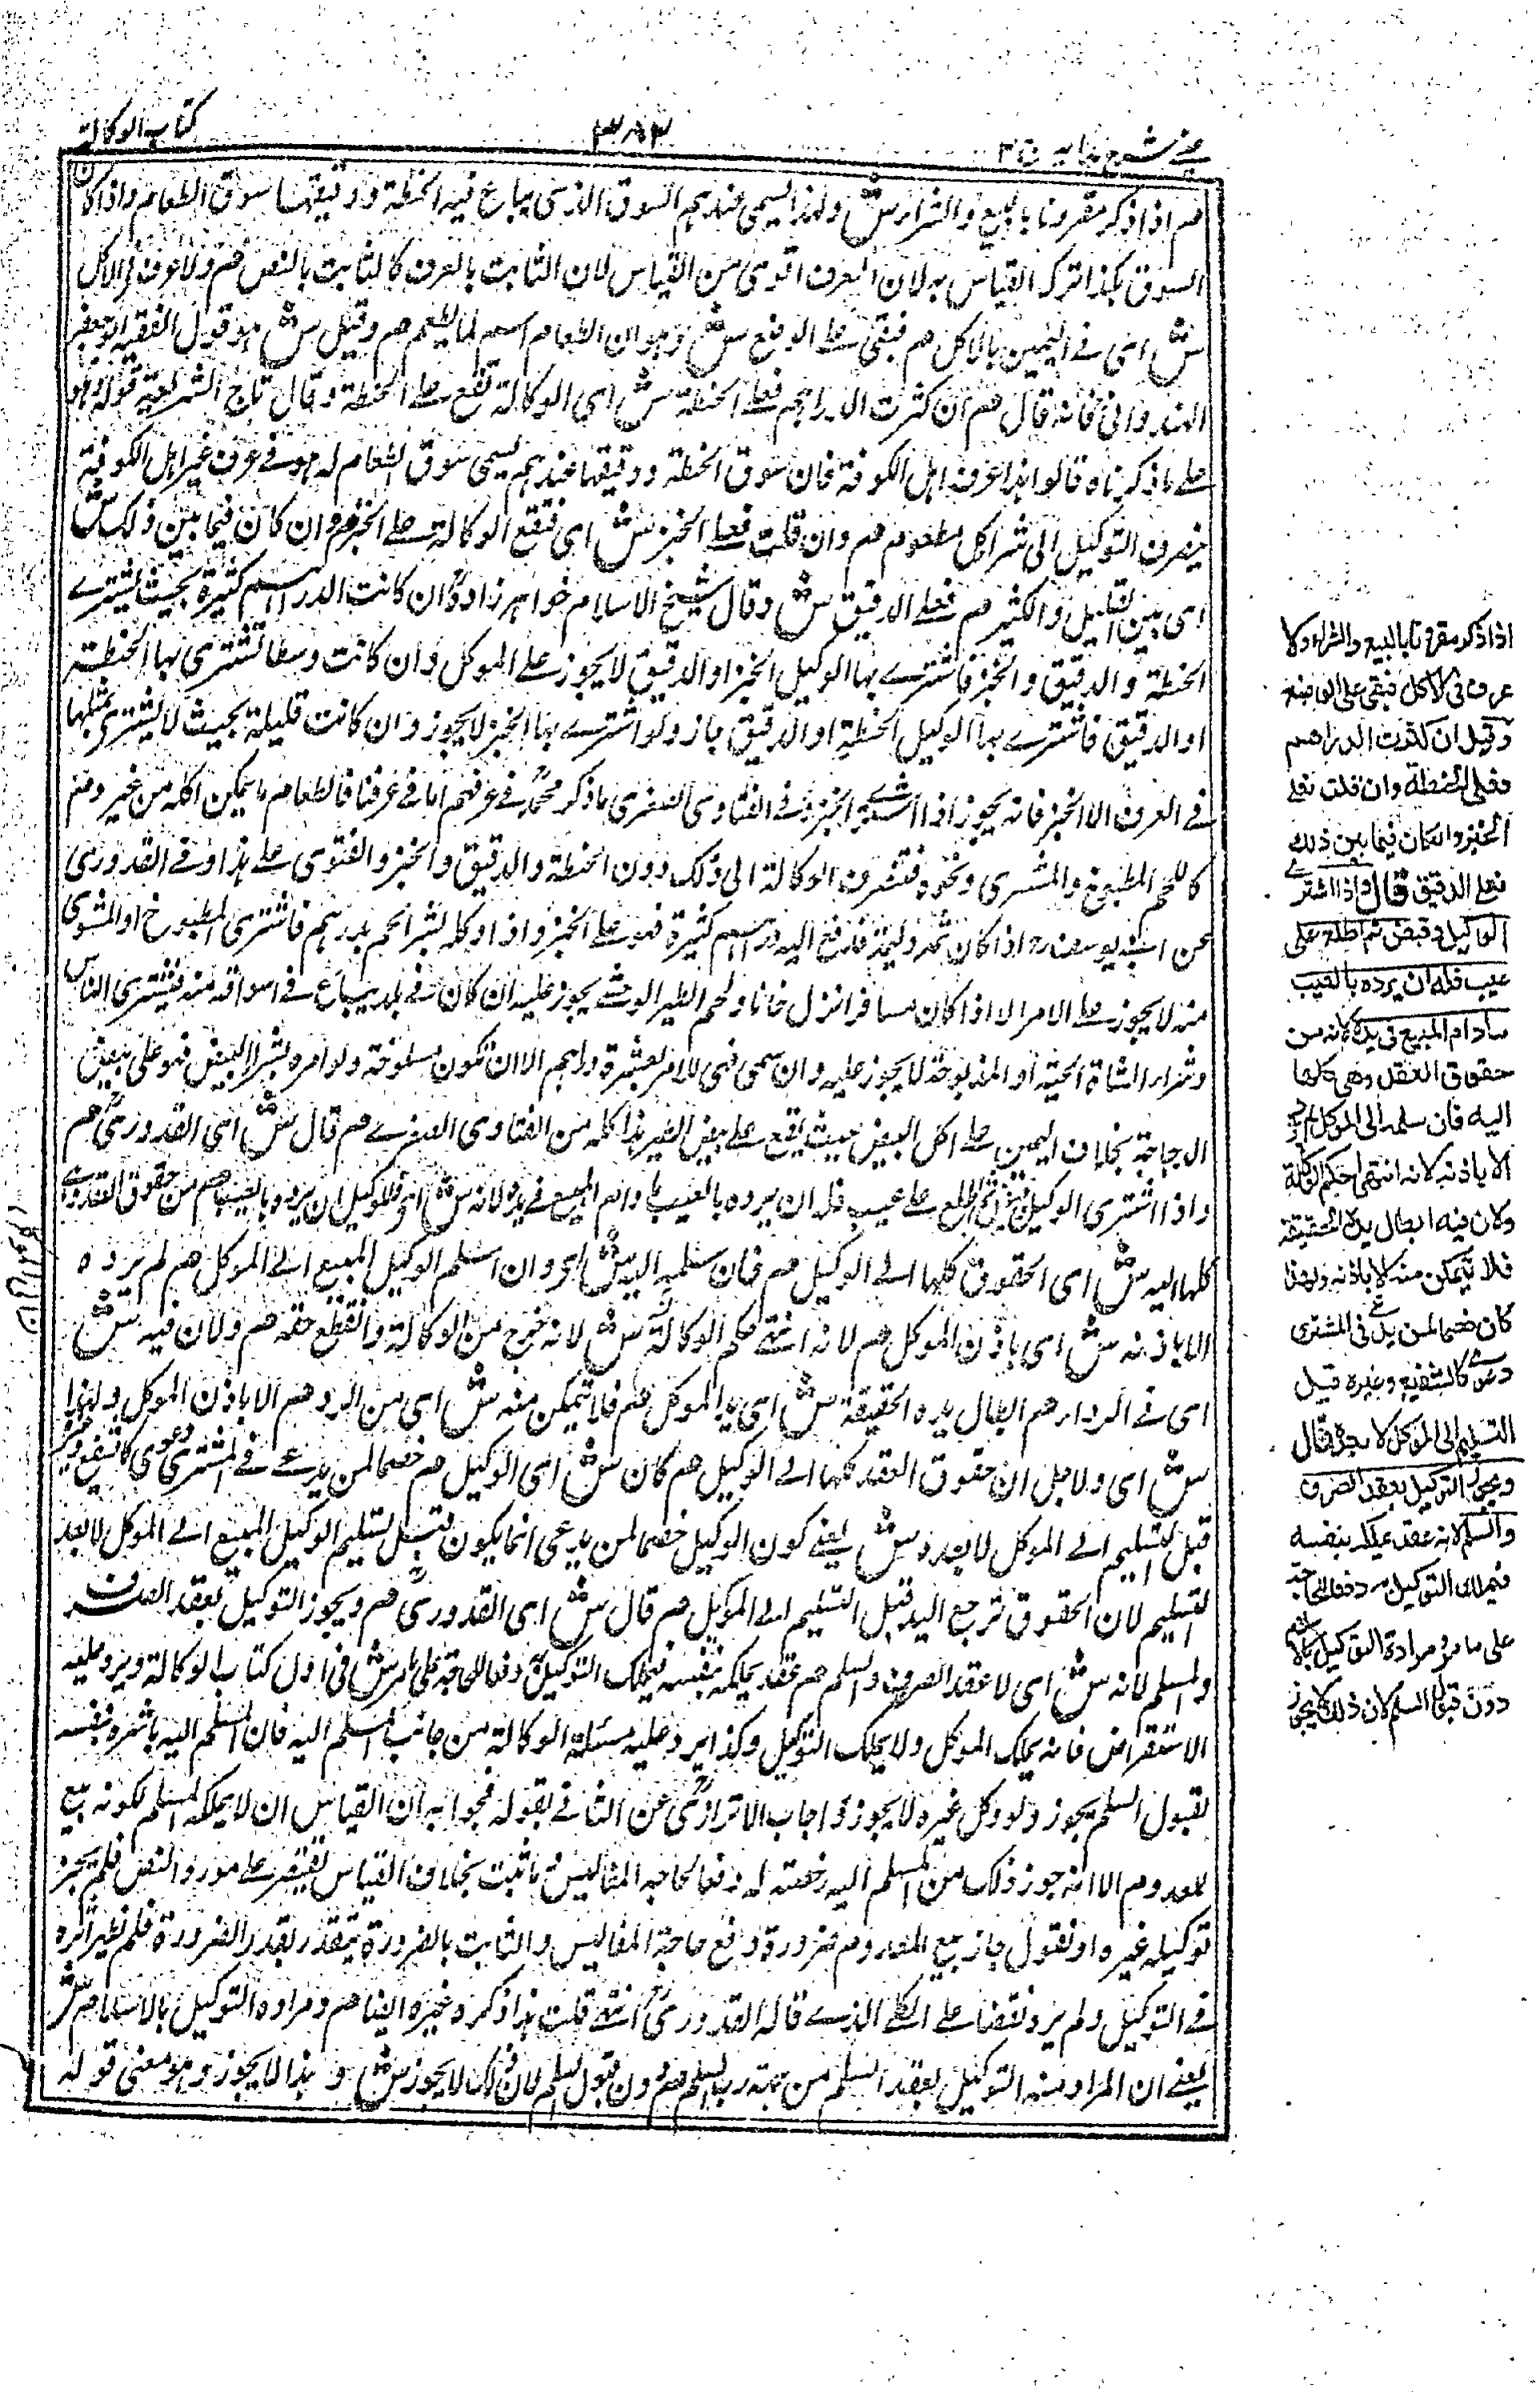 عيني شرح هدايه ج ٣
٣٨٣
كتاب الوكالة
م اذا ذكر مقرونا بالبيع والشراء ش ولهذا يسمى عندهم السوق الذي يباع فيه الحنطة ودقيقها سوق الطعام واذا كان
السوق هكذا ترك القياس به لان العرف اقوى من القياس لان الثابت بالعرف كالثابت بالنص م ولا عرف في الاكل
ش اى فے اليمين بالاكل م فبقى على الوضع ش وهو ان الطعام اسم لما يطعم م وقيل ش هو قول الفقيه ابو جعفر
الهندوانى فانه قال م ان كثرت الدراهم فعلى الحنطة ش اى الوكالة تقع على الحنطة وقال تاج الشريعة قوله وهو
على ما ذكرناه قالوا هذا عرف اهل الكوفة فان سوق الحنطة ودقيقها عندهم يسمى سوق الطعام له هو فے عرف غير اهل الكوفة
ينصرف التوكيل الى شراء كل مطعوم م وان قلت فعلى الخبز ش اى فتقع الوكالة على الخبز م وان كان فيما بين ذلك ش
اى بين القليل والكثير م فعلى الدقيق ش وقال شيخ الاسلام خواهر زاده ان كانت الدراهم كثيرة بحيث يشترے
الحنطة والدقيق والخبز فاشترے بها الوكيل الخبز او الدقيق لا يجوز على الموكل وان كانت وسطا تشترى بها الحنطة
او الدقيق فاشترے بها الوكيل الحنطة او الدقيق جاز ولو اشترے بها الخبز لا يجوز وان كانت قليلة بحيث لا يشترى بمثلها
فے العرف الا الخبز فانه يجوز اذا اشترے الخبز وفے الفتاوى الصغرى ما ذكر محمد فے عرفهم اما فے عرفنا فالطعام ما يمكن اكله من غير
كاللحم المطبوخ والمشوى ونحوه فتنصرف الوكالة الى ذلك دون الحنطة والدقيق والخبز والفتوى على هذا وفے القدورى
عن ابے يوسف رح اذا كان ثمه وليمة فدفع اليه دراهم كثيرة فهو على الخبز واذا وكله بشراء لحم بدرهم فاشترى المطبوخ او المشوى
منه لا يجوز على الامر الا اذا كان مسافرا نزل خانا ولحم الطير الوحشے يجوز عليه ان كان فے بلد يباع فے اسواقه منه فيشترى الناس
وشراء الشاة الحية او المذبوحة لا يجوز عليه وان سمى فى الامر بعشرة دراهم الا ان تكون مسلوخة ولو امره بشراء البيض فهو على بيض
الدجاجة بخلاف اليمين على اكل البيض حيث يقع على بيض الطير هذا كله من الفتاوى الصغرے م قال ش اى القدورى م
واذا اشترى الوكيل ثم اطلع على عيب فله ان يرده بالعيب ما دام المبيع فے يده لانه ش اى فللوكيل ان يرده بالعيب م من حقوق العقد وهے
كلها اليه ش اى الحقوق كلها الے الوكيل م فان سلمه اليه ش اى وان اسلم الوكيل المبيع الے الموكل م لم يرده
الا باذنه ش اى باذن الموكل م لانه انتهے حكم الوكالة ش لانه خرج من الوكالة وانقطع حقه م ولان فيه ش
اى فے الرد م ابطال يده الحقيقة ش اى يد الموكل م فلا يتمكن منه ش اى من الرد م الا باذن الموكل ولهذا
ش اى ولاجل ان حقوق العقد كلها الے الوكيل م كان ش اى الوكيل م خصما لمن يدعے فے المشترى دعوى كالشفيع وغيره
قبل التسليم الے الموكل لا بعده ش يعنے كون الوكيل خصما لمن يدعى انما يكون قبل تسليم الوكيل المبيع الے الموكل لا بعد
التسليم لان الحقوق ترجع اليه قبل التسليم الے الموكل م قال ش اى القدورى م ويجوز التوكيل بعقد الصرف
والسلم لانه ش اى لا عقد الصرف والسلم م عقد يملكه بنفسه فيملك التوكيل به دفعا للحاجة على ما مر ش فى اول كتاب الوكالة ويرد عليه
الاستقراض فانه يملك الموكل ولا يملك التوكيل وكذا يرد عليه مسئلة الوكالة من جانب المسلم اليه فان المسلم اليه باشره بنفسه
لقبول السلم يجوز ولو وكل غيره لا يجوز واجاب الاترازى عن الثانے بقوله فجوابه ان القياس ان لا يملكه المسلم لكونه بيع
المعدوم الا انه جوز ذلك من المسلم اليه رخصة له دفعا لحاجة المفاليس فما ثبت بخلاف القياس يقتصر على مورد النص فلم يجز
توكيله غيره او نقول جاز بيع المعدوم ضرورة دفع حاجة المفاليس والثابت بالضرورة يتقدر بقدر الضرورة فلم يظهر اثره
فے التوكيل ولم يرد نقضا على الكلے الذے قاله القدورى انتهے قلت هذا ذكره غيره ايضا م ومراده التوكيل بالاسلام ش
يعنے ان المراد منه التوكيل بعقد السلم من جهة رب السلم م دون قبول السلم لان ذلك لا يجوز ش و هذا لا يجوز وهو معنى قوله
اذا ذكر مقرونا بالبيع والشراء ولا
عرف فى الاكل فبقى على الوضع
وقيل ان كثرت الدراهم
فعلى الحنطة وان قلت فعلے
الخبز وان كان فيما بين ذلك
فعلى الدقيق قال واذا اشترے
الوكيل وقبض ثم اطلع على
عيب فله ان يرده بالعيب
ما دام المبيع فى يده لانه من
حقوق العقد وهى كلها
اليه فان سلمه الى الموكل لم يرده
الا باذنه لانه انتهى حكم الوكالة
ولان فيه ابطال يده الحقيقة
فلا يتمكن منه الا باذنه ولهذا
كان خصما لمن يدعے فى المشترى
دعوے كالشفيع وغيره قبل
التسليم الى الموكل لا بعده قال
ويجوز التوكيل بعقد الصرف
والسلم لانه عقد يملكه بنفسه
فيملك التوكيل به دفعا للحاجة
على ما مر ومراده التوكيل بالاسلام
دون قبول السلم لان ذلك لا يجوز